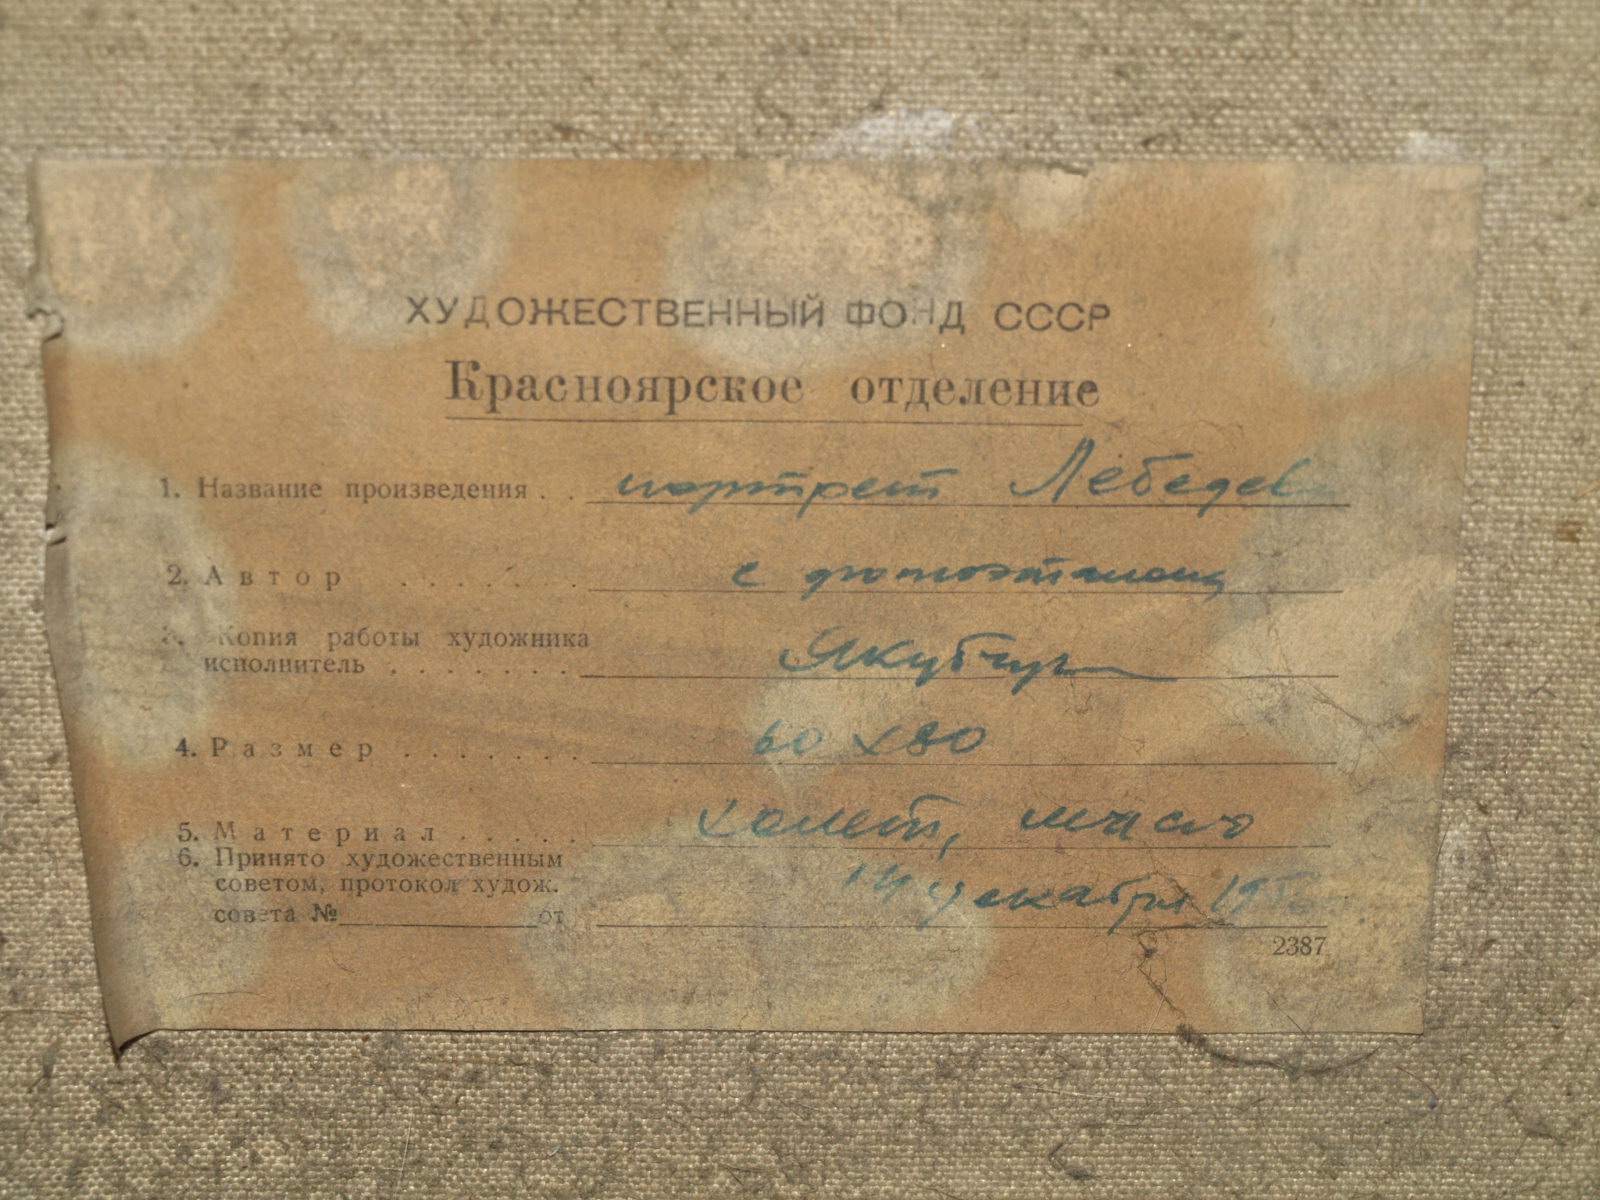 ХУДОЖЕСТВЕННЫЙ ФОНД СССР
Красноярское отделение
1. Название произведения . . портрет Лебедева
2. Автор . . . . . . . с фотоэталона
3. Копия работы художника
исполнитель . . . . . . .
4. Размер . . . . . . . 60 х 80
5. Материал . . . . . холст, масло
6. Принято художественным
советом, протокол худож. 14 декабря
совета № от
2387